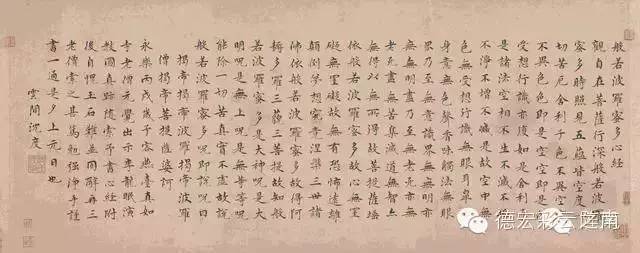 般若波羅蜜多心經
觀自在菩薩行深般若波羅
蜜多時照見五蘊皆空度一
切苦厄舍利子色不異空空
不異色色即是空空即是色
受想行識亦復如是舍利子
是諸法空相不生不滅不垢
不淨不增不減是故空中無
色無受想行識無眼耳鼻舌
身意無色聲香味觸法無眼
界乃至無意識界無無明亦
無無明盡乃至無老死亦無
老死盡無苦集滅道無智亦
無得以無所得故菩提薩埵
依般若波羅蜜多故心無罣
礙無罣礙故無有恐怖遠離
顛倒夢想究竟涅槃三世諸
佛依般若波羅蜜多故得阿
耨多羅三藐三菩提故知般
若波羅蜜多是大神呪是大
明呪是無上呪是無等等呪
能除一切苦真實不虛故說
般若波羅蜜多呪即說呪曰
揭帝揭帝波羅揭帝波羅
僧揭帝菩提薩婆訶
永樂丙戌歲予客燕臺真如
寺老僧元覺出示尊龍眠演
教圖真跡隨索予書心經附
後自愧玉石雜並固辭再三
老僧索之甚篤勉強淨手謹
書一通是夕上元日也
雲間沈度
德宏彩云南